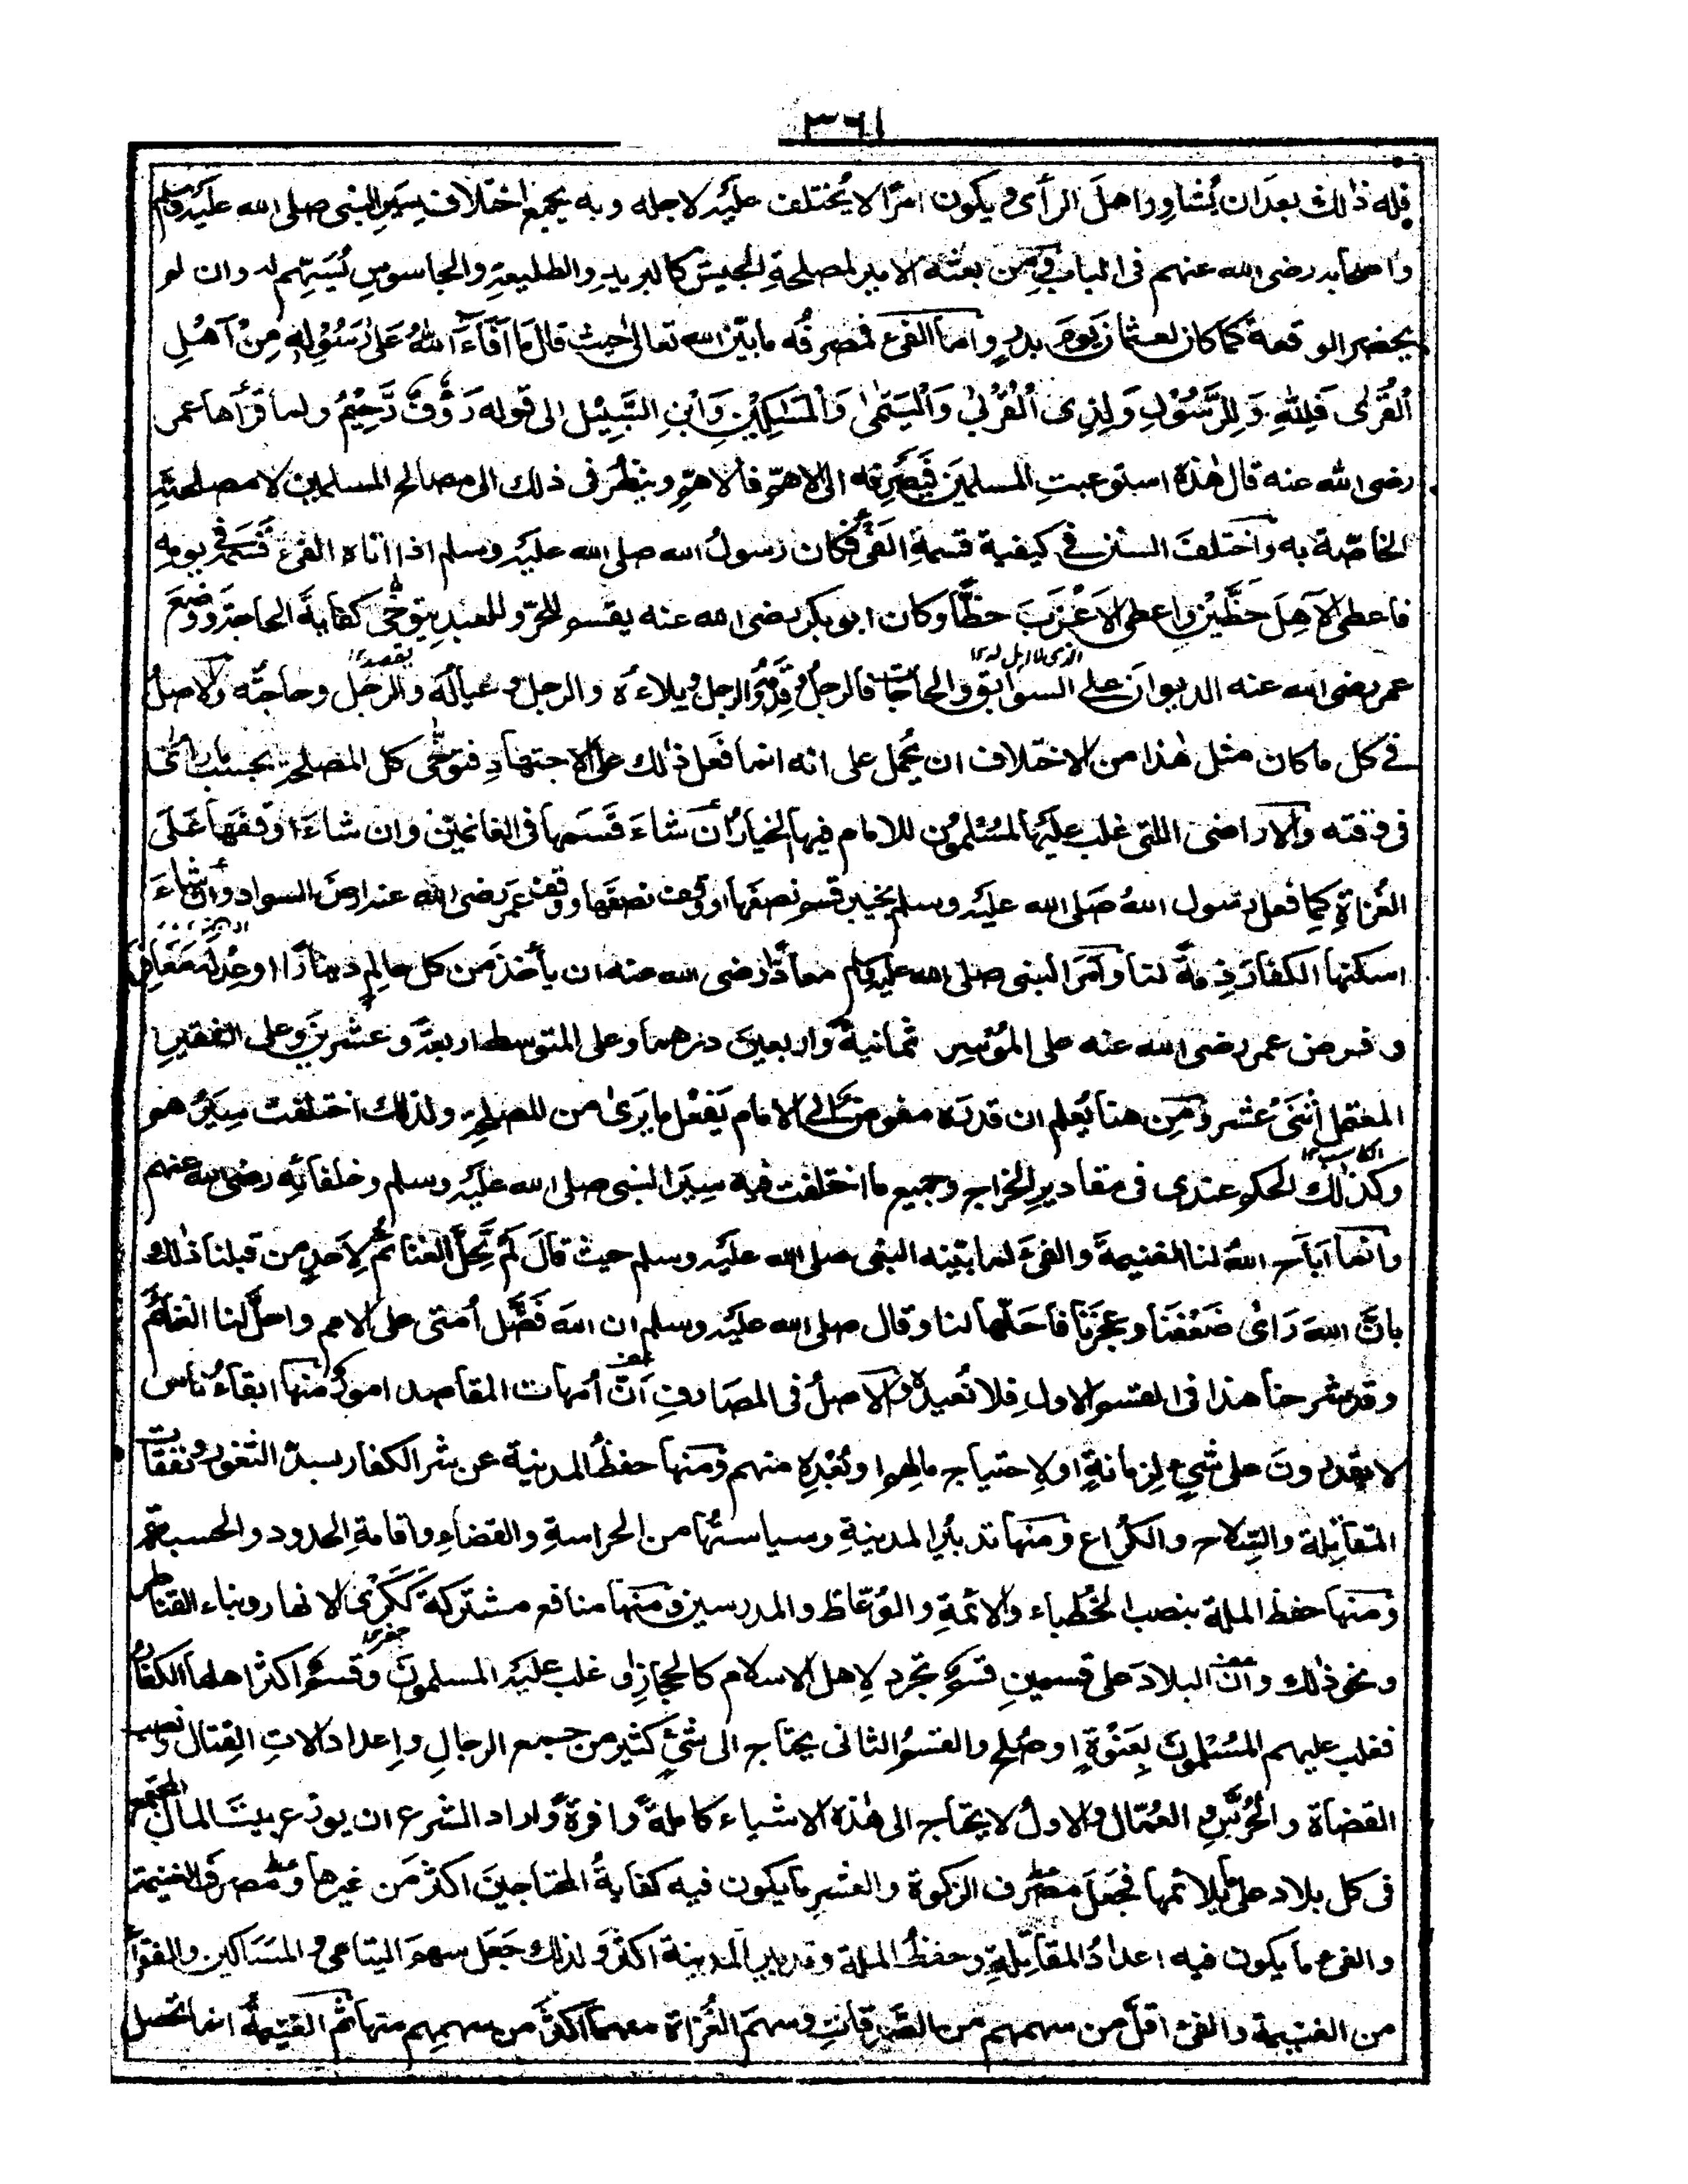 ٣٦١
فله ذلك بعد ان يُشاوِر اهلَ الرأى ويكون امرًا لا يُختلف عليه لاجله وبه يجمع اختلاف سِيَرِ النبى صلى الله عليه وسلم
واصحابه رضى الله عنهم فى الباب ومن بعثه الامير لمصلحةِ الجيش كالبريدِ والطليعةِ والجاسوسِ يُسهِم له وان لم
يحضر الوقعة كما كان لعثمان يَومَ بدرٍ واما الفئ فمصرفُه ما بيّن الله تعالىٰ حيث قال مَا اَفَآءَ اللّٰهُ عَلىٰ رَسُوْلِهٖ مِنْ اَهْلِ
الْقُرٰى فَلِلّٰهِ وَلِلرَّسُوْلِ وَلِذِى الْقُرْبٰى وَالْيَتٰمٰى وَالْمَسٰكِيْنِ وَابْنِ السَّبِيْلِ الى قوله رَءُوْفٌ رَّحِيْمٌ ولما قرأها عمر
رضى الله عنه قال هٰذه استوعبتِ المسلمين فيَصرِفه الى الاهمّ فالاهمّ وينظُر فى ذلك الى مصالح المسلمين لا مصلحتِه
الخاصّة به واختلفت السنن فى كيفية قسمة الفئ فكان رسولُ الله صلى الله عليه وسلم اذا اتاه الفئ قسَمه فى يومه
فاعطى الآهِلَ حظَّيْنِ واعطى الاَعْزَبَ حظًّا وكان ابو بكر رضى الله عنه يقسم للحرّ وللعبد يتوخّى كفايةَ الحاجة ووضع
الذى لا اهل له
يقصد
عمر رضى الله عنه الديوانَ على السوابق والحاجات فالرجل وقِدَمُه والرجل وبلاءُه والرجل وعيالُه والرجل وحاجتُه والاصلُ
فى كل ما كان مثل هٰذا من الاختلاف ان يُحمل على انه انما فعل ذٰلك على الاجتهادِ فتوخّى كل المصلحةِ بحسب ما رأى
فى وقته والاراضى التى غلب عليها المُسْلِمُون للامام فيها الخيارُ ان شاءَ قَسَمها فى الغانمين وان شاءَ اوقفها عَلَى
الغُزاةِ كما فعل رسول اللهُ صَلى الله عليه وسلم بخيبر قسم نصفَها ووقف نصفَها ووقف عمر رضى الله عنه ارضَ السواد وان شاءَ
اسكنها الكفارَ ذِمةً لنا وأمرَ النبى صلى الله عليه وسلم معاذًا رضى الله عنه ان يأخذ من كل حالِمٍ دينارًا او عِدله مَعافر
وفرض عمر رضى الله عنه على المُوسِر ثمانيةً واربعين درهما وعلى المتوسط اربعةً وعشرين وعلى الفقير
المعتمل اثنَىْ عشر ومن هنا يُعلم ان قدرَه مفوض الى الامام يَفعْل ما يَرىٰ من المصلحةِ ولذلك اختلفت سِيَرُهم
الكاسب
وكذٰلك الحكم عندى فى مقادير الخراج وجميع ما اختلفت فيه سِيَر النبى صلى الله عليه وسلم وخلفائِه رضى الله عنهم
وانما اَباحَ اللهُ لنا الغنيمةَ والفئَ لما بيّنه النبى صلى الله عليه وسلم حيث قالَ لَم تَحِلَّ الغنائمُ لِاَحدٍ من قبلنا ذٰلك
بانَّ الله رَاٰى ضَعْفَنا وعجزَنا فاَحَلَّها لنا وقال صلى الله عليه وسلم ان اللهَ فَضَّل اُمتى على الامم واحلَّ لنا الغنائم
وقد شرحنا هذا فى القسم الاولِ فلا نُعيده والاصلُ فى المصارفِ اَنَّ اُمهات المقاصد امورٌ منها ابقاءُ ناس
لا يقدرون على شئٍ لِزَمانةٍ او لاِحتياجِ مالِهم او بُعْدِه منهم ومنها حفظُ المدينة عن شر الكفار بسدِّ الثغور ونفقات
المقاتِلة والسِّلاح والكُراع ومنها تدبيرُ المدينةِ وسياستُها من الحراسةِ والقضاءِ واقامةِ الحدود والحسبة
ومنها حفظ الملة بنصب الخُطباء والائمةِ والوُعّاظ والمدرسين ومنها منافع مشتركة ككَرْىِ الانهار وبناء القناطر
حفر
ونحو ذٰلك وأنَّ البلادَ على قسمينِ قسمٌ تجرد لِاهل الاسلام كالحجاز او غلب عليه المسلمون وقسمٌ اكثر اهلها الكفارُ
فغلب عليهم المُسْلِمُون بِعَنْوَةٍ او صُلحٍ والقسمُ الثانى يحتاج الى شئٍ كثيرٍ من جمع الرجالِ واِعدادِ الاتِ القِتال ونصب
القضاة والحُرّسِ والعمّال والاولُ لا يحتاج الى هٰذه الاشياء كاملةً وافرةً واراد الشرع ان يوزع بيتَ المال المجتمع
فى كل بلاد على ما يلائمها فجَعَلَ مصرف الزكوة والعشرِ ما يكون فيه كفايةُ المحتاجين اكثر من غيرها ومصرف الغنيمة
والفئ ما يكون فيه اعدادُ المقاتِلةِ وحفظُ الملة وتدبير المدينة اكثر ولذلك جَعَل سهمَ اليتامى والمسَاكين والفقراء
من الغنيمة والفئ اقلَّ من سهمهم من الصدقاتِ وسهمَ الغُزاة منهما اَكثرَ من سهمهم منها ثم الغنيمةُ انما تحصل